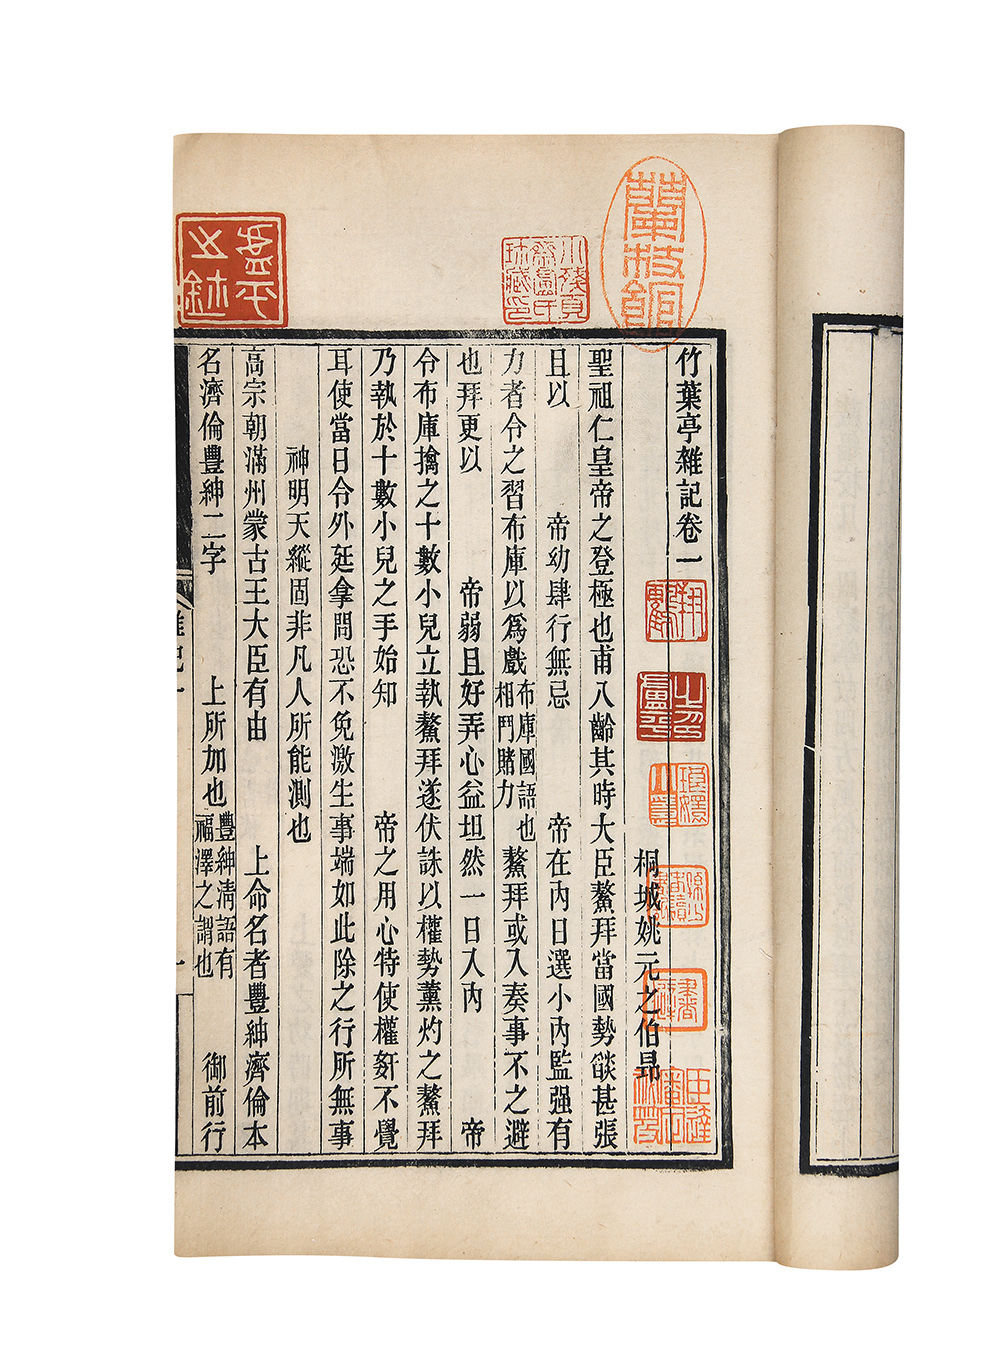 竹葉亭雜記卷一
桐城姚元之伯昻
聖祖仁皇帝之登極也甫八齡其時大臣鰲拜當國勢燄甚張
且以 帝幼肆行無忌 帝在內日選小內監强有
力者令之習布庫以爲戲布庫國語也相鬥賭力鰲拜或入奏事不之避
也拜更以 帝弱且好弄心益坦然一日入內 帝
令布庫擒之十數小兒立執鰲拜遂伏誅以權勢薰灼之鰲拜
乃執於十數小兒之手始知 帝之用心特使權姧不覺
耳使當日令外廷拿問恐不免激生事端如此除之行所無事
神明天縱固非凡人所能測也
高宗朝滿州蒙古王大臣有由 上命名者豐紳濟倫本
名濟倫豐紳二字 上所加也豐紳淸語有福澤之謂也 御前行
雜記一
一